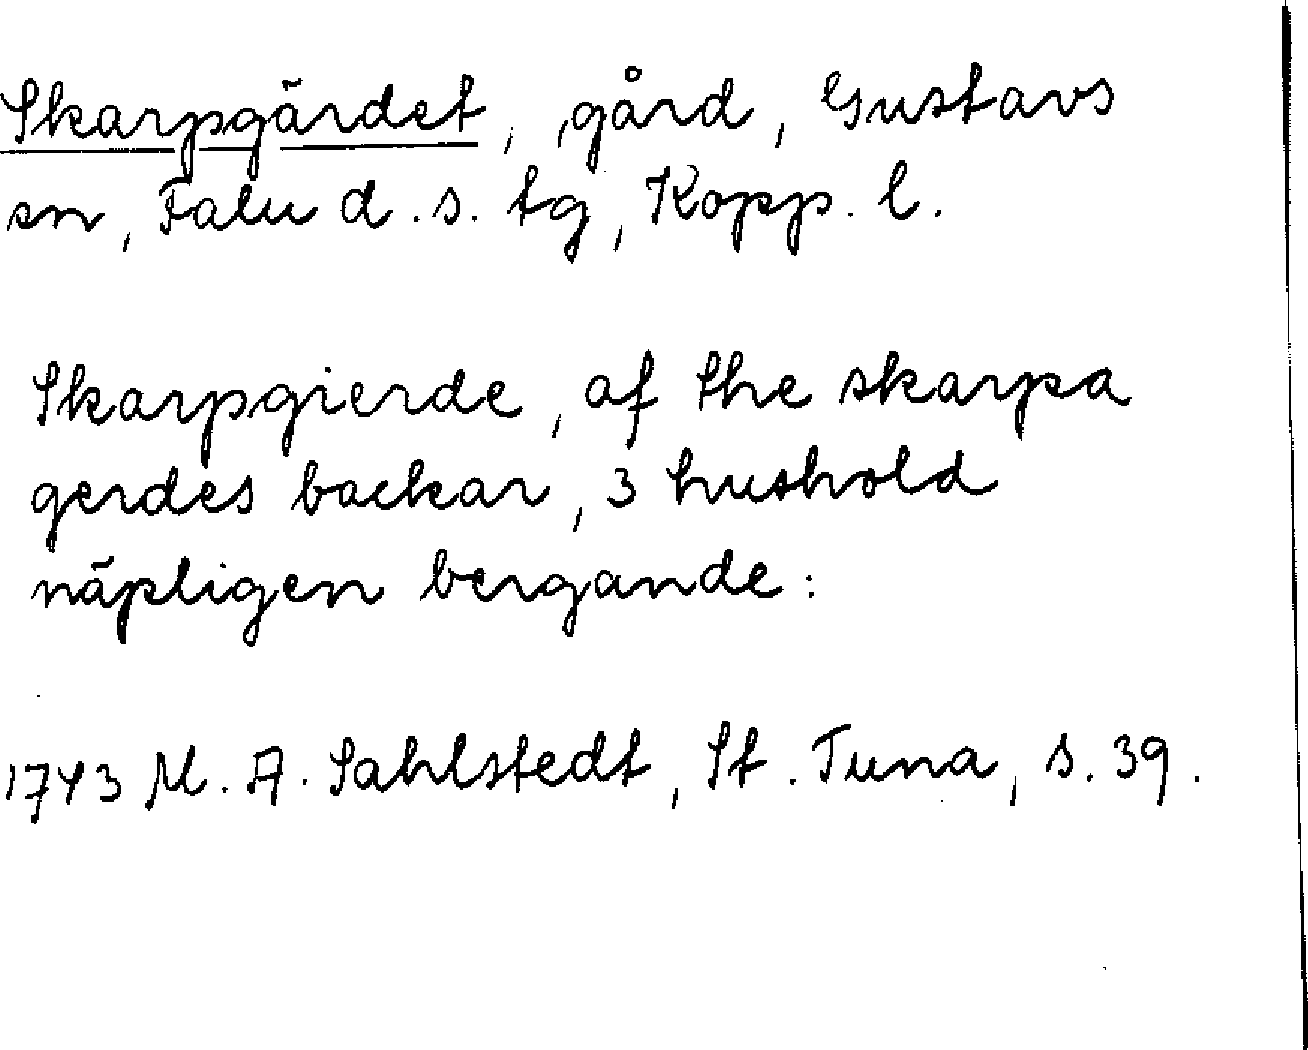 Skarpgärdet, gård, Gustavs
sn, Falu d. s. tg, Kopp. l.
Skarpgierde, af the skarpa
gerdes backar, 3 hushold
näpligen bergande:
1743 M. A. Sahlstedt, St. Tuna, s. 39.